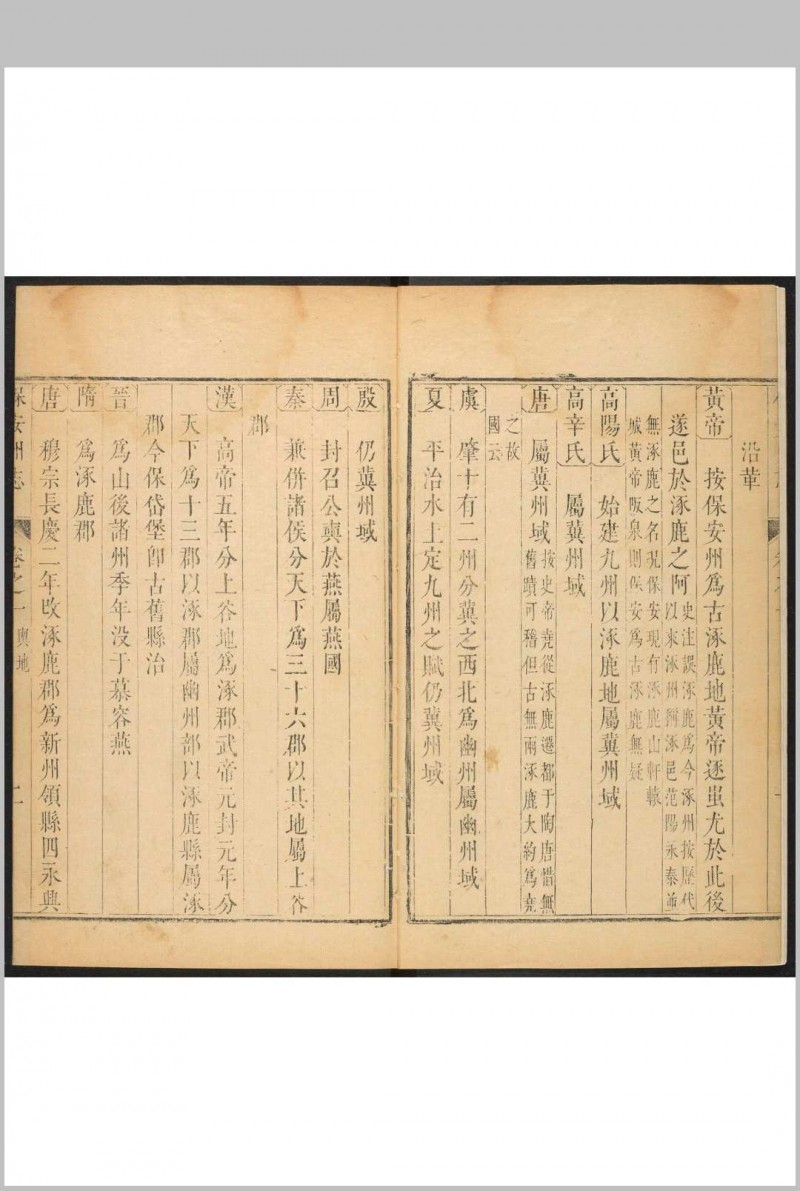 沿革
黃帝　按保安州爲古涿鹿地黃帝逐蚩尤於此後
遂邑於涿鹿之阿史注誤涿鹿爲今涿州按歷代
以來涿州爲涿邑范陽永泰並
無涿鹿之名况保安現有涿鹿山軒轅
城黃帝阪泉則保安爲古涿鹿無疑
高陽氏　始建九州以涿鹿地屬冀州域
高辛氏　屬冀州域
唐　屬冀州域按史帝堯從涿鹿遷都于陶唐惜無
舊蹟可稽但古無兩涿鹿大約爲堯
之故
國云
虞　肇十有二州分冀之西北爲幽州屬幽州域
夏　平治水土定九州之賦仍冀州域
殷　仍冀州域
周　封召公奭於燕屬燕國
秦　兼併諸侯分天下爲三十六郡以其地屬上谷
郡
漢　高帝五年分上谷地爲涿郡武帝元封元年分
天下爲十三郡以涿郡屬幽州部以涿鹿縣屬涿
郡今保岱堡卽古舊縣治
晉　爲山後諸州季年没于慕容燕
隋　爲涿鹿郡
唐　穆宗長慶二年改涿鹿郡爲新州領縣四永興
保安州志　卷之一　輿地　二